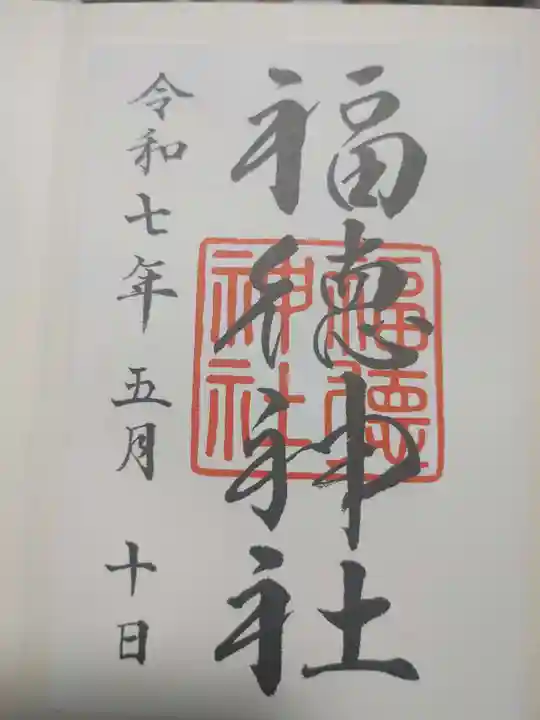 福徳神社
福徳神社
令和七年 五月 十日